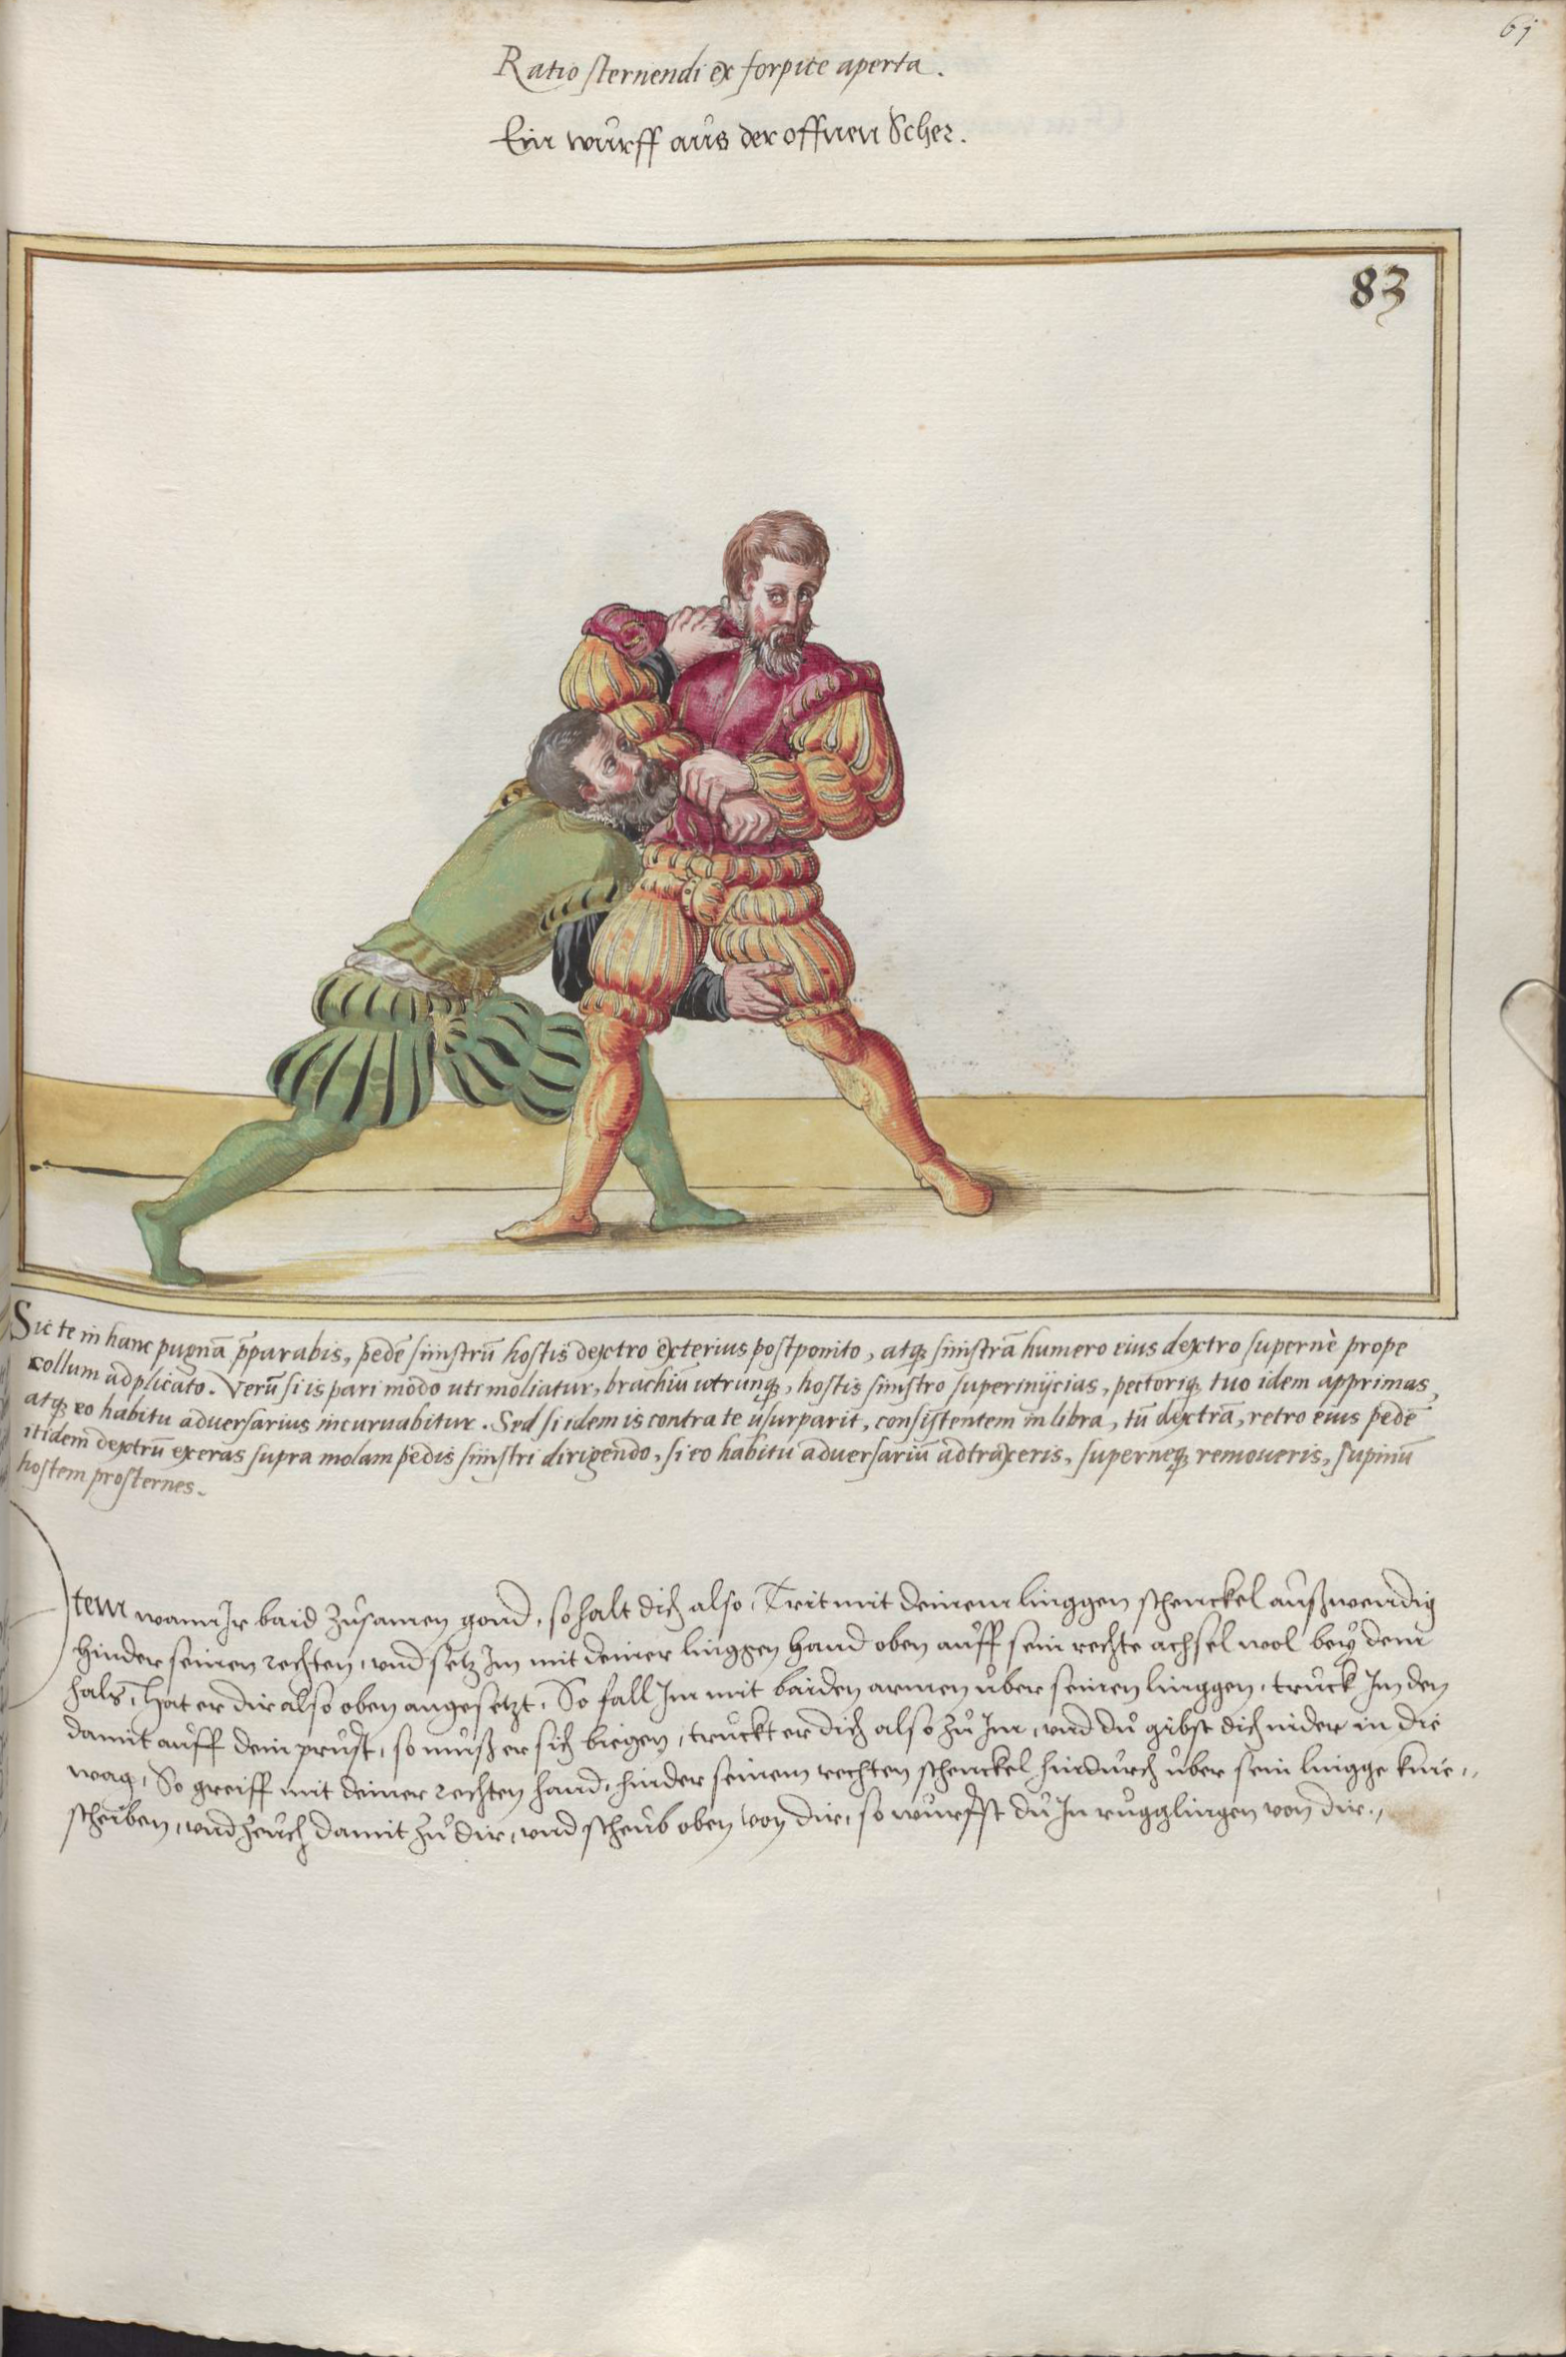 61
Ratio sternendi ex forpice aperta.
Ein wurff aus der offnen Scher.
83
Sic te in hanc pugnā p̄parabis, pedē sinistrū hostis dextro exterius postponito, atq; sinistrā humero eius dextro supernè prope
collum adplicato. Verū si is pari modo uti moliatur, brachiū utrunq;, hostis sinistro superinijcias, pectoriq; tuo idem apprimas,
atq; eo habitu aduersarius incuruabitur. Sed si idem is contra te usurparit, consistentem in libra, tū dextrā, retro eius pedē
itidem dextrū exeras supra molam pedis sinistri dirigendo, si eo habitu aduersariū adtraxeris, superneq; remoueris, supinū
hostem prosternes.
Item wann Ir baid zůsamen gond, so halt dich also, Trit mit deinem linggen schenckel außwendig
hinder seinen rechten, vnd setz Im mit deiner linggen hand oben auff sein rechte achsel wol bey dem
hals, hat er dir also oben angesetzt, So fall Im mit baiden armen uber seinen linggen, truck Im den
damit auff dein prust, so muß er sich biegen, truckt er dich also zů Im, vnd du gibst dich nider in die
wag, So greiff mit deiner rechten hand, hinder seinem rechten schenckel hindurch uber sein lingge knie„
scheiben, vnd zeuch damit zů dir, vnd scheub oben von dir, so wurffst du In rugglingen von dir„